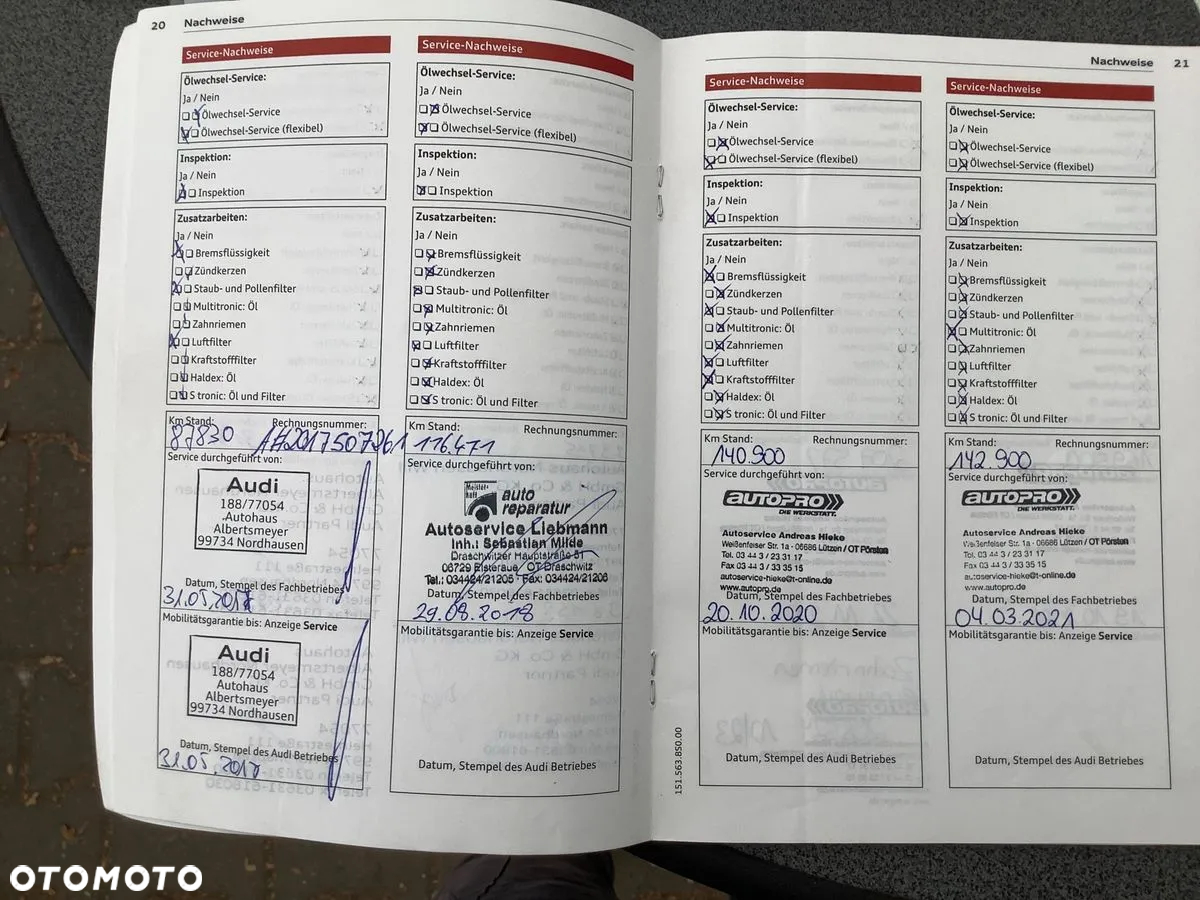 20 Nachweise
Service-Nachweise
Ölwechsel-Service:
Ja / Nein
Ölwechsel-Service
Ölwechsel-Service (flexibel)
Inspektion:
Ja / Nein
Inspektion
Zusatzarbeiten:
Ja / Nein
Bremsflüssigkeit
Zündkerzen
Staub- und Pollenfilter
Multitronic: Öl
Zahnriemen
Luftfilter
Kraftstofffilter
Haldex: Öl
S tronic: Öl und Filter
Km Stand: Rechnungsnummer:
87830
Service durchgeführt von:
Audi
188/77054
Autohaus
Albertsmeyer
99734 Nordhausen
Datum, Stempel des Fachbetriebes
31.05.2017
Mobilitätsgarantie bis: Anzeige Service
Audi
188/77054
Autohaus
Albertsmeyer
99734 Nordhausen
Datum, Stempel des Audi Betriebes
31.05.2017
Service-Nachweise
Ölwechsel-Service:
Ja / Nein
Ölwechsel-Service
Ölwechsel-Service (flexibel)
Inspektion:
Ja / Nein
Inspektion
Zusatzarbeiten:
Ja / Nein
Bremsflüssigkeit
Zündkerzen
Staub- und Pollenfilter
Multitronic: Öl
Zahnriemen
Luftfilter
Kraftstofffilter
Haldex: Öl
S tronic: Öl und Filter
Km Stand: Rechnungsnummer:
116.471
Service durchgeführt von:
Meister-
haft
auto
reparatur
Autoservice Liebmann
Inh.: Sebastian Milde
Draschwitzer Hauptstraße 51
06729 Elsteraue / OT Draschwitz
Tel.: 034424/21205 Fax: 034424/21206
Datum, Stempel des Fachbetriebes
29.08.2018
Mobilitätsgarantie bis: Anzeige Service
Datum, Stempel des Audi Betriebes
Nachweise 21
Service-Nachweise
Ölwechsel-Service:
Ja / Nein
Ölwechsel-Service
Ölwechsel-Service (flexibel)
Inspektion:
Ja / Nein
Inspektion
Zusatzarbeiten:
Ja / Nein
Bremsflüssigkeit
Zündkerzen
Staub- und Pollenfilter
Multitronic: Öl
Zahnriemen
Luftfilter
Kraftstofffilter
Haldex: Öl
S tronic: Öl und Filter
Km Stand: Rechnungsnummer:
140.900
Service durchgeführt von:
AUTOPRO
DIE WERKSTATT.
Autoservice Andreas Hieke
Weißenfelser Str. 1a · 06686 Lützen / OT Pörsten
Tel. 03 44 3 / 23 31 17
Fax 03 44 3 / 33 35 15
autoservice-hieke@t-online.de
www.autopro.de
Datum, Stempel des Fachbetriebes
20.10.2020
Mobilitätsgarantie bis: Anzeige Service
Datum, Stempel des Audi Betriebes
151.563.850.00
Service-Nachweise
Ölwechsel-Service:
Ja / Nein
Ölwechsel-Service
Ölwechsel-Service (flexibel)
Inspektion:
Ja / Nein
Inspektion
Zusatzarbeiten:
Ja / Nein
Bremsflüssigkeit
Zündkerzen
Staub- und Pollenfilter
Multitronic: Öl
Zahnriemen
Luftfilter
Kraftstofffilter
Haldex: Öl
S tronic: Öl und Filter
Km Stand: Rechnungsnummer:
142.900
Service durchgeführt von:
AUTOPRO
DIE WERKSTATT.
Autoservice Andreas Hieke
Weißenfelser Str. 1a · 06686 Lützen / OT Pörsten
Tel. 03 44 3 / 23 31 17
Fax 03 44 3 / 33 35 15
autoservice-hieke@t-online.de
www.autopro.de
Datum, Stempel des Fachbetriebes
04.03.2021
Mobilitätsgarantie bis: Anzeige Service
Datum, Stempel des Audi Betriebes
OTOMOTO